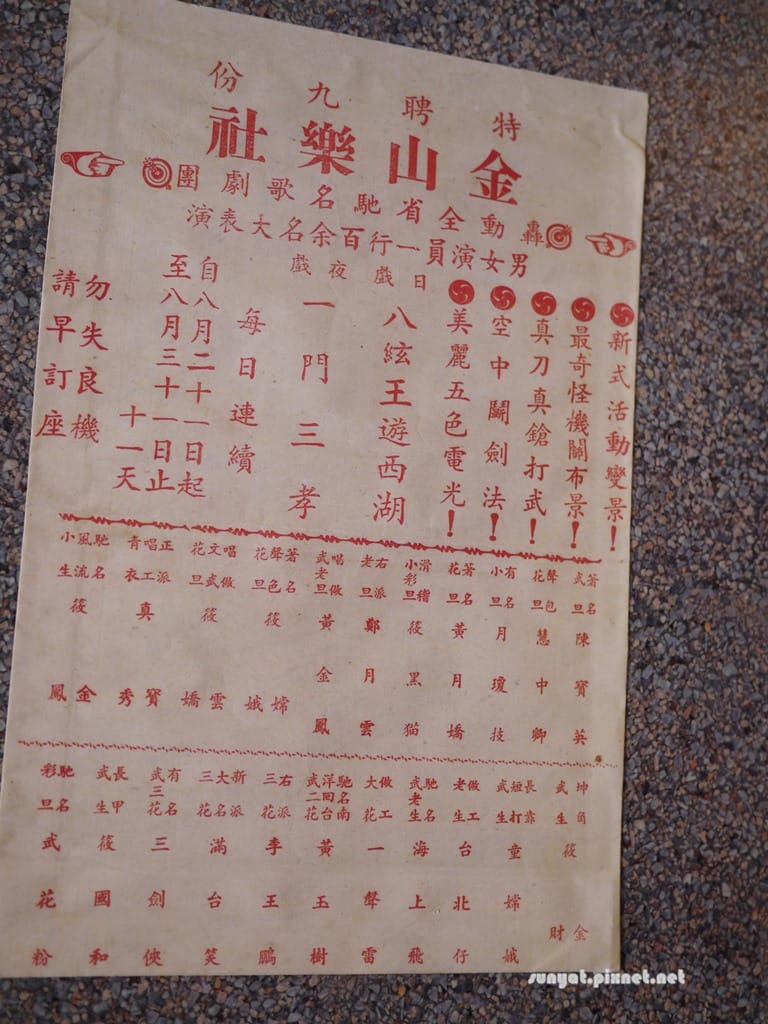 特聘九份
金山樂社
轟動全省馳名歌劇團
男女演員一行百余名大表演
新式活動變景！
最奇怪機關布景！
真刀真鎗打武！
空中鬪劍法！
美麗五色電光！
日戲
八絃王遊西湖
夜戲
一門三孝
每日連續
自八月二十一日起
至八月三十一日止
十一天
勿失良機
請早訂座
著名武旦 陳寶英
聲色花旦 慧中卿
有名小旦 月瓊技
著名花旦 黃月嬌
滑稽小彩旦 筱黑猫
右派老旦 鄭月雲
唱做武老旦 黃金鳳
著名聲色花旦 筱嫦娥
唱做文武花旦 筱雲嬌
正派唱工青衣 真寶秀
馳名風流小生 筱金鳳
坤角武生 筱金財
長靠短打武生 童嫦娥
做工老生 台北仔
馳名武老生 海上飛
做工大花 一聲雷
馳名洋回台南武二花 黃玉樹
右派三花 李王鵬
新派大名三花 滿台笑
有名武三花 三劍俠
長甲武生 筱國和
馳名彩旦 武花粉
sunyat.pixnet.net